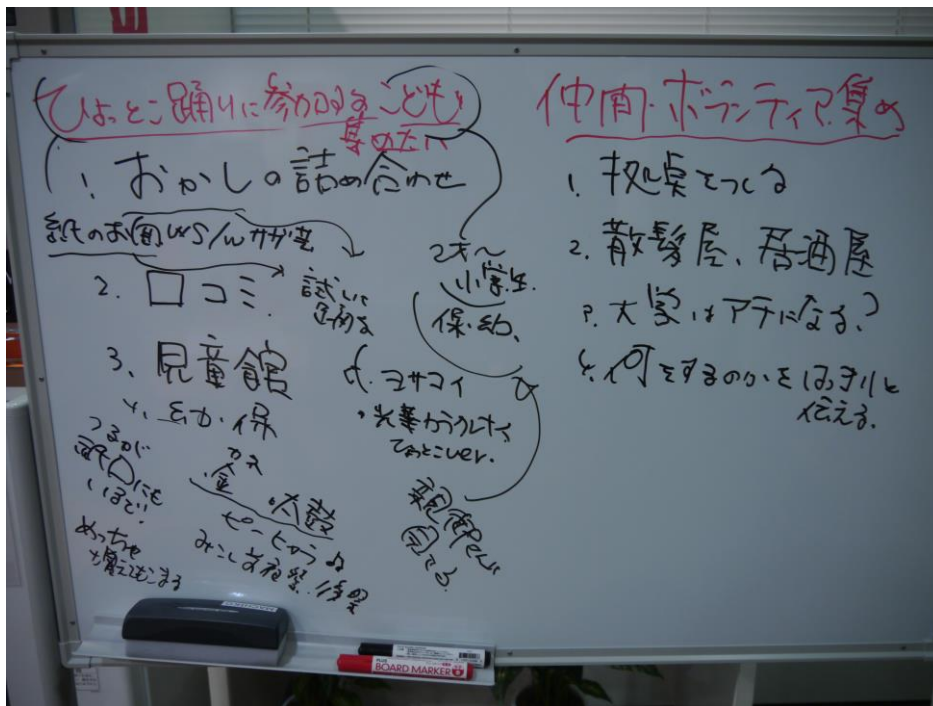 ひょっとこ踊りに参加するこどもを
集めたい
1. おかしの詰め合わせ
紙のお面WS/w
2. 口コミ
試しに
3. 児童館
4. 幼・保
つるが
いるで!
めっちゃ
増えてもこまる
カネ
金 太鼓
ピーヒャラ♪
みこし 前夜祭・後祭
2才〜
小学生
保・幼
ヨサコイ
ひょっとこver.
親御さん
見てる
仲間・ボランティア集め
1. 拠点をつくる
2. 散髪屋、居酒屋
3. 大学はアテになる?
4. 何をするのかをはっきりと
伝える.
PLUS
BOARD MARKER